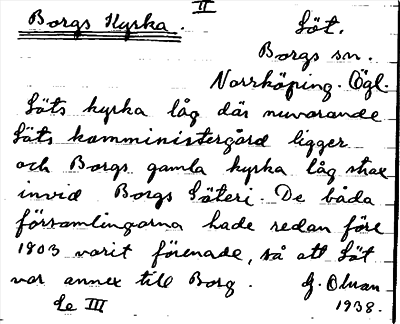 II
Borgs Kyrka.
Löt.
Borgs sn.
Norrköping. Ögl.
Löts kyrka låg där nuvarande
Löts komministergård ligger
och Borgs gamla kyrka låg strax
invid Borgs Säteri. De båda
församlingarna hade redan före
1803 varit förenade, så att Löt
var annex till Borg. G. Olson
Se III 1938.